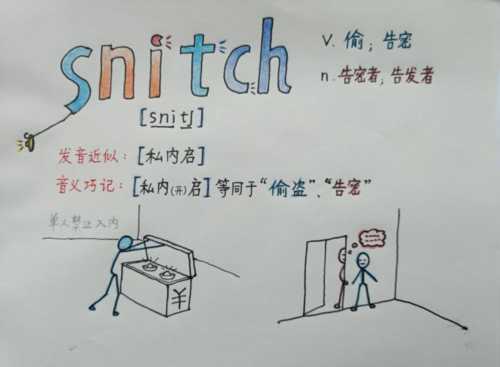 snitch
v. 偷；告密
n. 告密者，告发者
[snitʃ]
发音近似：[私内启]
音义巧记：[私内(开)启]等同于“偷盗”、“告密”
单人禁止入内
¥